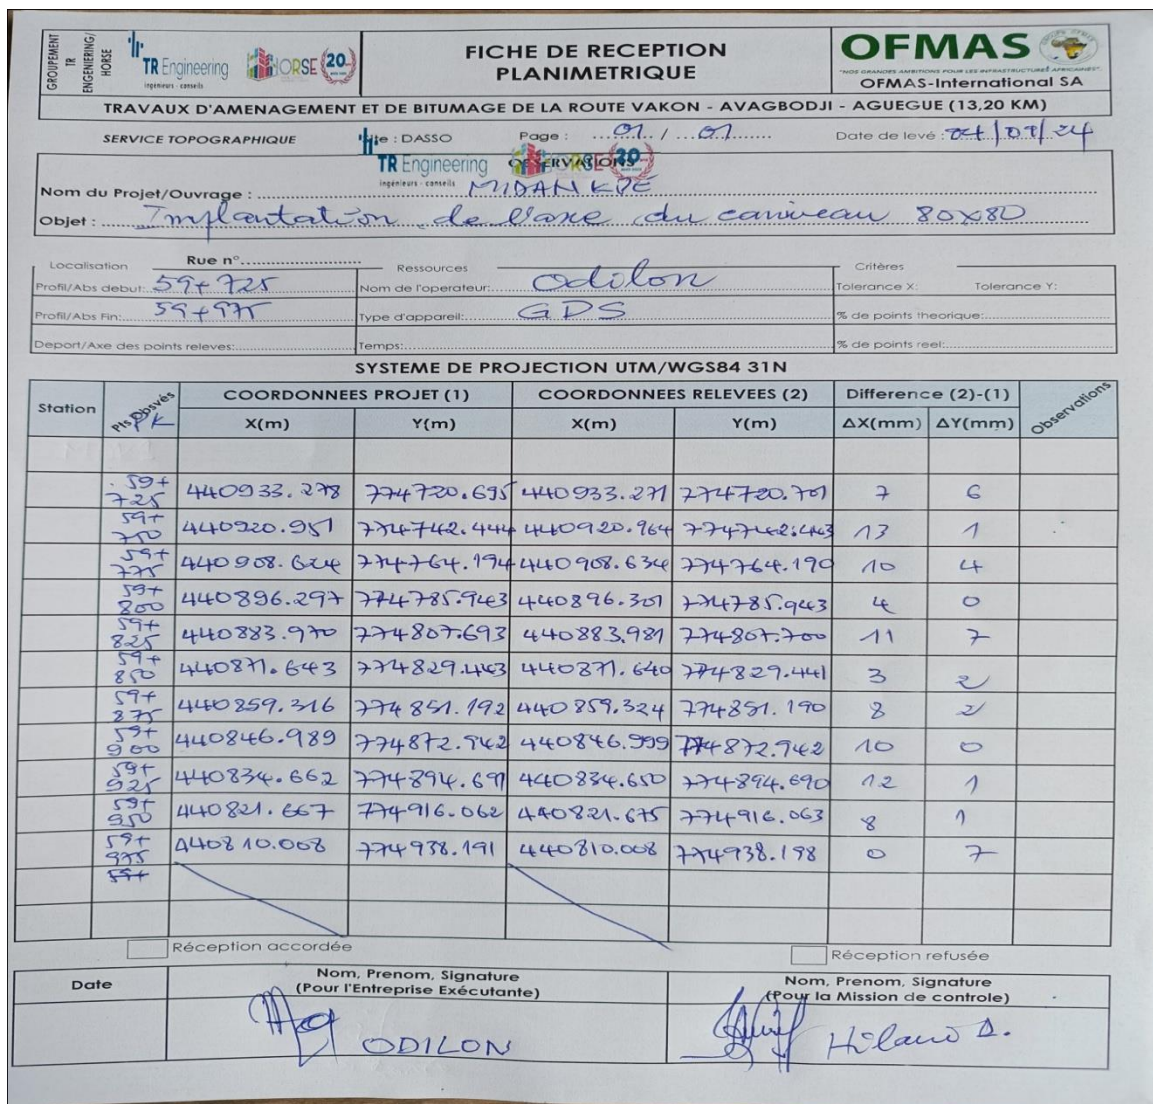 GROUPEMENT TR ENGENIERING/ HORSE
TR Engineering
ingénieurs - conseils
HORSE 20
FICHE DE RECEPTION PLANIMETRIQUE
OFMAS
"NOS GRANDES AMBITIONS POUR LES INFRASTRUCTURES AFRICAINES"
OFMAS-International SA
TRAVAUX D'AMENAGEMENT ET DE BITUMAGE DE LA ROUTE VAKON - AVAGBODJI - AGUEGUE (13,20 KM)
SERVICE TOPOGRAPHIQUE : DASSO Page : 01 / 01 Date de levé : 04/07/24
TR Engineering
ingénieurs - conseils
OBSERVATIONS
Nom du Projet/Ouvrage : MIDANKPE
Objet : Implantation de l'axe du caniveau 80x80
Localisation Rue n° Ressources Critères
Profil/Abs debut: 59+725 Nom de l'operateur: Odilon Tolerance X: Tolerance Y:
Profil/Abs Fin: 59+975 Type d'appareil: GDS % de points theorique:
Deport/Axe des points releves: Temps: % de points reel:
SYSTEME DE PROJECTION UTM/WGS84 31N
Station Pts Obsvés PK COORDONNEES PROJET (1) COORDONNEES RELEVEES (2) Difference (2)-(1) Observations
X(m) Y(m) X(m) Y(m) ΔX(mm) ΔY(mm)
59+725 440933.278 774720.695 440933.271 774720.701 7 6
59+750 440920.951 774742.444 440920.964 774742.443 13 1
59+775 440908.624 774764.194 440908.634 774764.190 10 4
59+800 440896.297 774785.943 440896.301 774785.943 4 0
59+825 440883.970 774807.693 440883.981 774807.700 11 7
59+850 440871.643 774829.443 440871.640 774829.441 3 2
59+875 440859.316 774851.192 440859.324 774851.190 8 2
59+900 440846.989 774872.942 440846.999 774872.942 10 0
59+925 440834.662 774894.691 440834.650 774894.690 12 1
59+950 440821.667 774916.062 440821.675 774916.063 8 1
59+975 440810.008 774938.191 440810.008 774938.198 0 7
59+
Réception accordée Réception refusée
Date Nom, Prenom, Signature (Pour l'Entreprise Exécutante) Nom, Prenom, Signature (Pour la Mission de controle)
ODILON